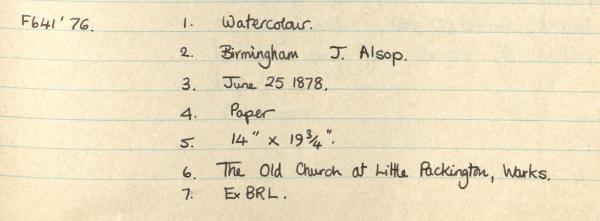 F641'76. 1. Watercolour.
2. Birmingham J. Alsop.
3. June 25 1878.
4. Paper
5. 14" x 19¾".
6. The Old Church at Little Packington, Warks.
7. Ex BRL.